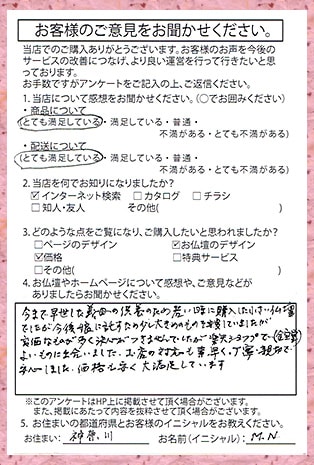 お客様のご意見をお聞かせください。
当店でのご購入ありがとうございます。お客様のお声を今後の
サービスの改善につなげ、より良い運営を行って行きたいと思
っております。
お手数ですがアンケートをご記入の上、ご返信ください。
1. 当店について感想をお聞かせください。(〇でお囲みください)
・商品について
(とても満足している・満足している・普通・
不満がある・とても不満がある)
・配送について
(とても満足している・満足している・普通・
不満がある・とても不満がある)
2. 当店を何でお知りになりましたか?
☑インターネット検索 □カタログ □チラシ
□知人・友人 その他( )
3. どのような点をご覧になり、ご購入したいと思われましたか?
□ページのデザイン ☑お仏壇のデザイン
☑価格 □特典サービス
□その他( )
4. お仏壇やホームページについて感想や、ご意見などが
ありましたらお聞かせください。
今まで早世した義母の供養のため若い時に購入した小さい仏壇
でしたが今後娘に託すため少し大きめのものを探していましたが
高価なものが多く決心がつきませんでしたが楽天ショップで
よいものに出会いました。お店の対応も素早く丁寧・親切で
安心しました。価格も安く大満足しています
※このアンケートはHP上に掲載させて頂く場合がございます。
また、掲載にあたって内容を抜粋させて頂く場合がございます。
5. お住まいの都道府県とお客様のイニシャルをお教えください。
お住まい: 神奈川 お名前(イニシャル): M.N